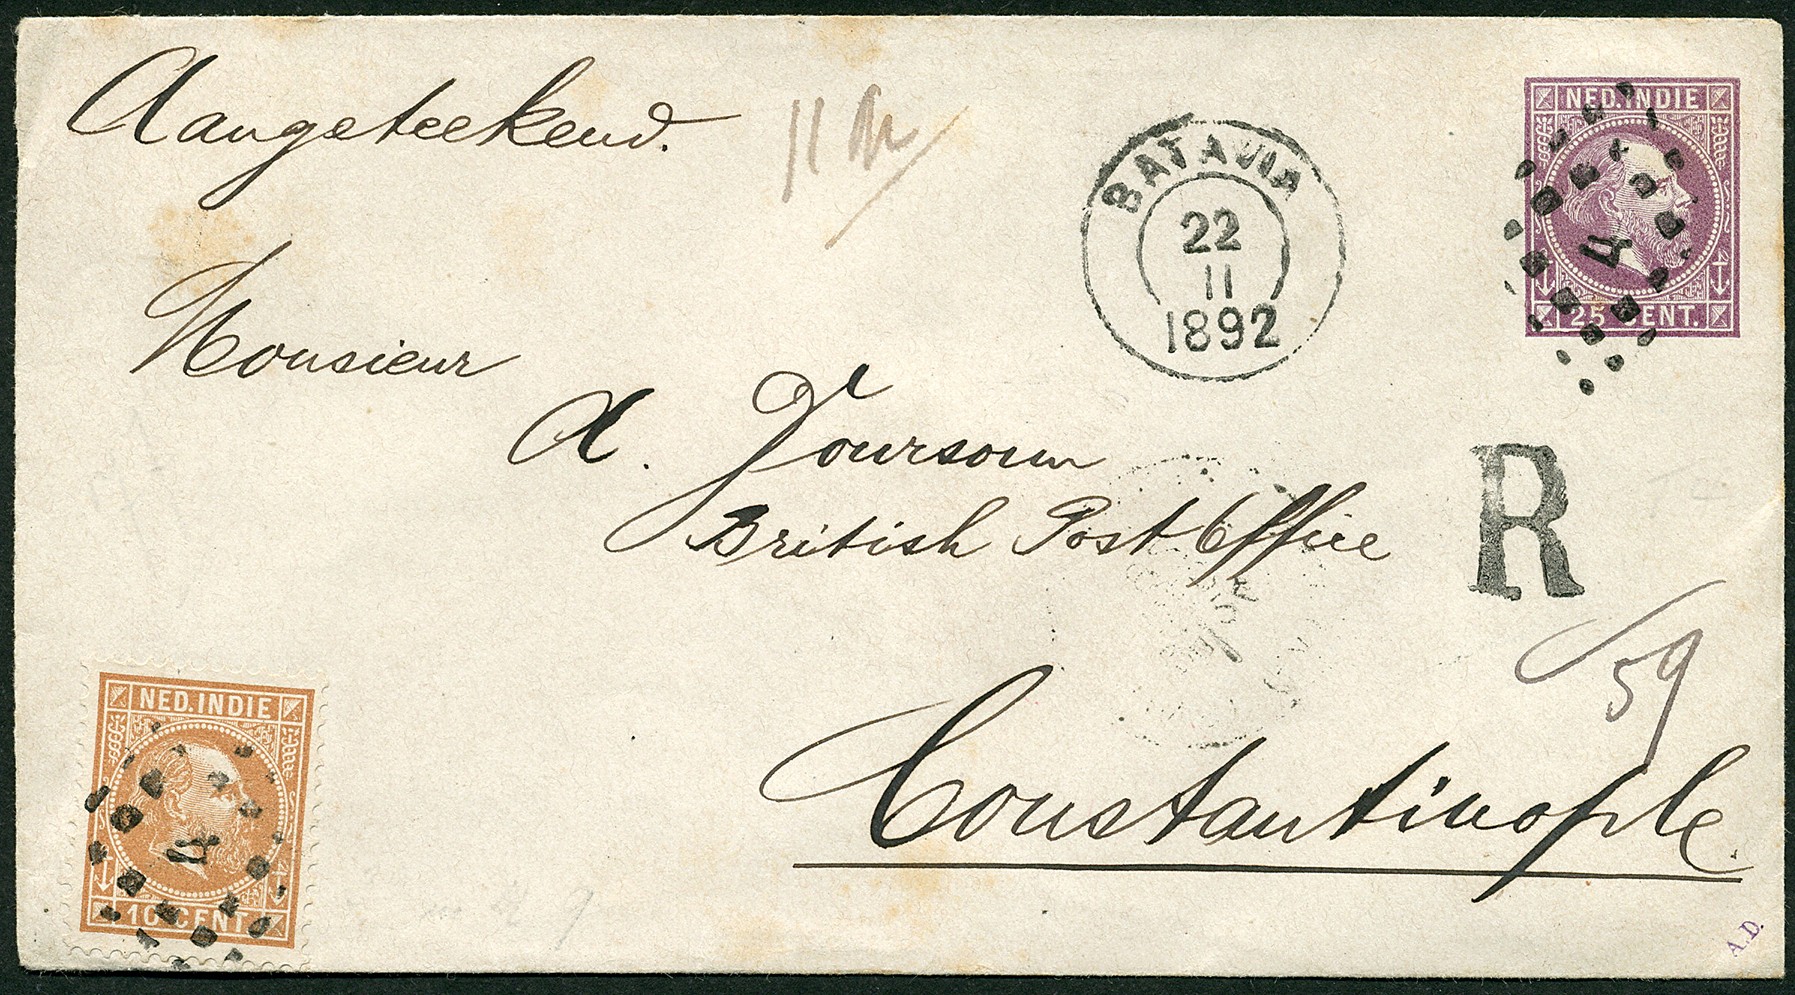 Aangeteekend.
11
BATAVIA
22
11
1892
NED. INDIE
4
25 CENT.
Monsieur
A. Toursoun
British Post Office
R
59
Constantinople.
NED. INDIE
4
10 CENT.
A.D.